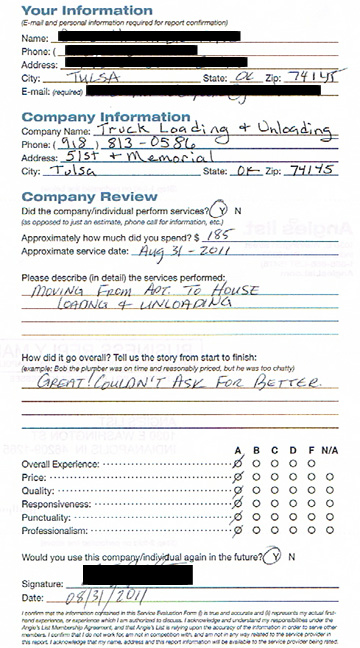 Your Information
(E-mail and personal information required for report confirmation)
Name:
Phone: (
Address:
City: TULSA State: OK Zip: 74145
E-mail: (required)
Company Information
Company Name: Truck Loading & Unloading
Phone: (918) 813-0586
Address: 51st & Memorial
City: Tulsa State: OK Zip: 74145
Company Review
Did the company/individual perform services? Y N
(as opposed to just an estimate, phone call for information, etc.)
Approximately how much did you spend? $ 185
Approximate service date: Aug 31 - 2011
Please describe (in detail) the services performed:
MOVING FROM APT. TO HOUSE
LOADNG & UNLOADING
How did it go overall? Tell us the story from start to finish:
(example: Bob the plumber was on time and reasonably priced, but he was too chatty)
GREAT! COULDN'T ASK FOR BETTER.
A B C D F N/A
Overall Experience:
Price:
Quality:
Responsiveness:
Punctuality:
Professionalism:
Would you use this company/individual again in the future? Y N
Signature:
Date: 08/31/2011
I confirm that the information contained in this Service Evaluation Form (i) is true and accurate and (ii) represents my actual first-
hand experience, or experience which I am authorized to discuss. I acknowledge and understand my responsibilities under the
Angie's List Membership Agreement, and that Angie's List is relying upon the accuracy of the information in order to serve other
members. I confirm that I do not work for, am not in competition with, and am not in any way related to the service provider in
this report. I acknowledge that my name, address and this report information will be available to the service provider being rated.